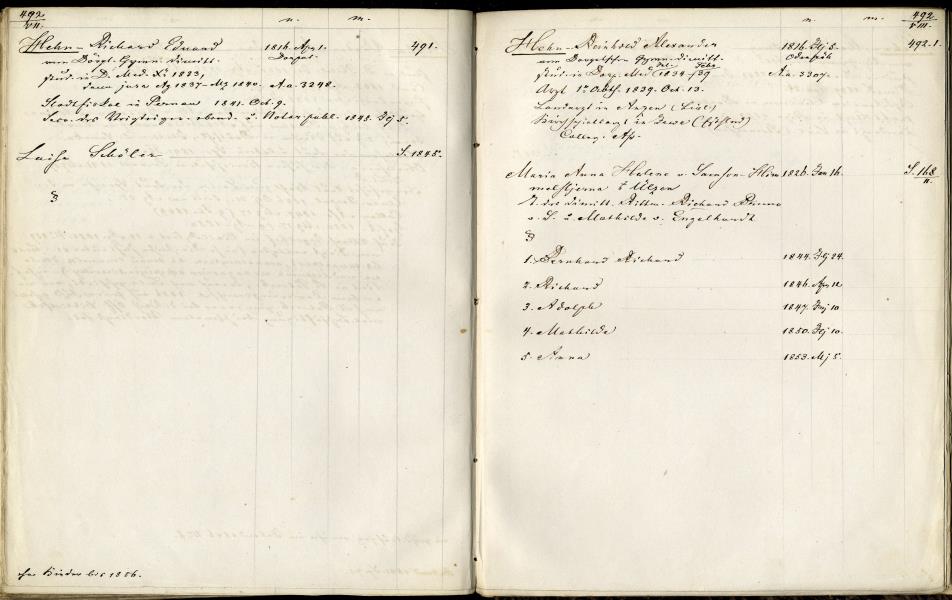 492
VII.
n. m.
Hehn - Richard Eduard 1816. Apr 1. 491.
vom Dörpt. Gymn. dimitt. Dorpat.
stud. in D. Med. 1823,
dann jura Ag 1837 - Mz 1840. A.a. 3248.
Stadtfiskal in Pernau 1841. Oct. 9.
Secr. des Voigteiger. ebend. u. Notar. publ. 1843. Jlj 5.
Luise Schöler S. 1845.
§
ohne Kinder bis 1856.
492
VIII.
n. m.
Hehn - Reinhold Alexander 1816. Jlj 5. 492.1.
vom Dorpatschen Gymn. dimitt. Odenpäh
stud. in Dorp. Med. 1834 - 39 A.a. 3307.
Arzt 1r Abth. 1839. Oct. 13.
Landarzt in Anzen (Livl.)
Kirchspielsarzt in Jewe (Ehstland)
Colleg. Ass.
Maria Anna Helene v. Samson-Him 1826. Jan 16. S. 168
melstjerna Ülzen II.
T. des dimitt. Rittm. Richard Bruno
v. S. u. Mathilde v. Engelhardt
§
1. Bernhard Richard 1844. Jlj 24.
2. Richard 1846. Apr 12
3. Adolph 1847. Jnj 10
4. Mathilde 1850. Jlj 10.
5. Anna 1853. Mj 5.